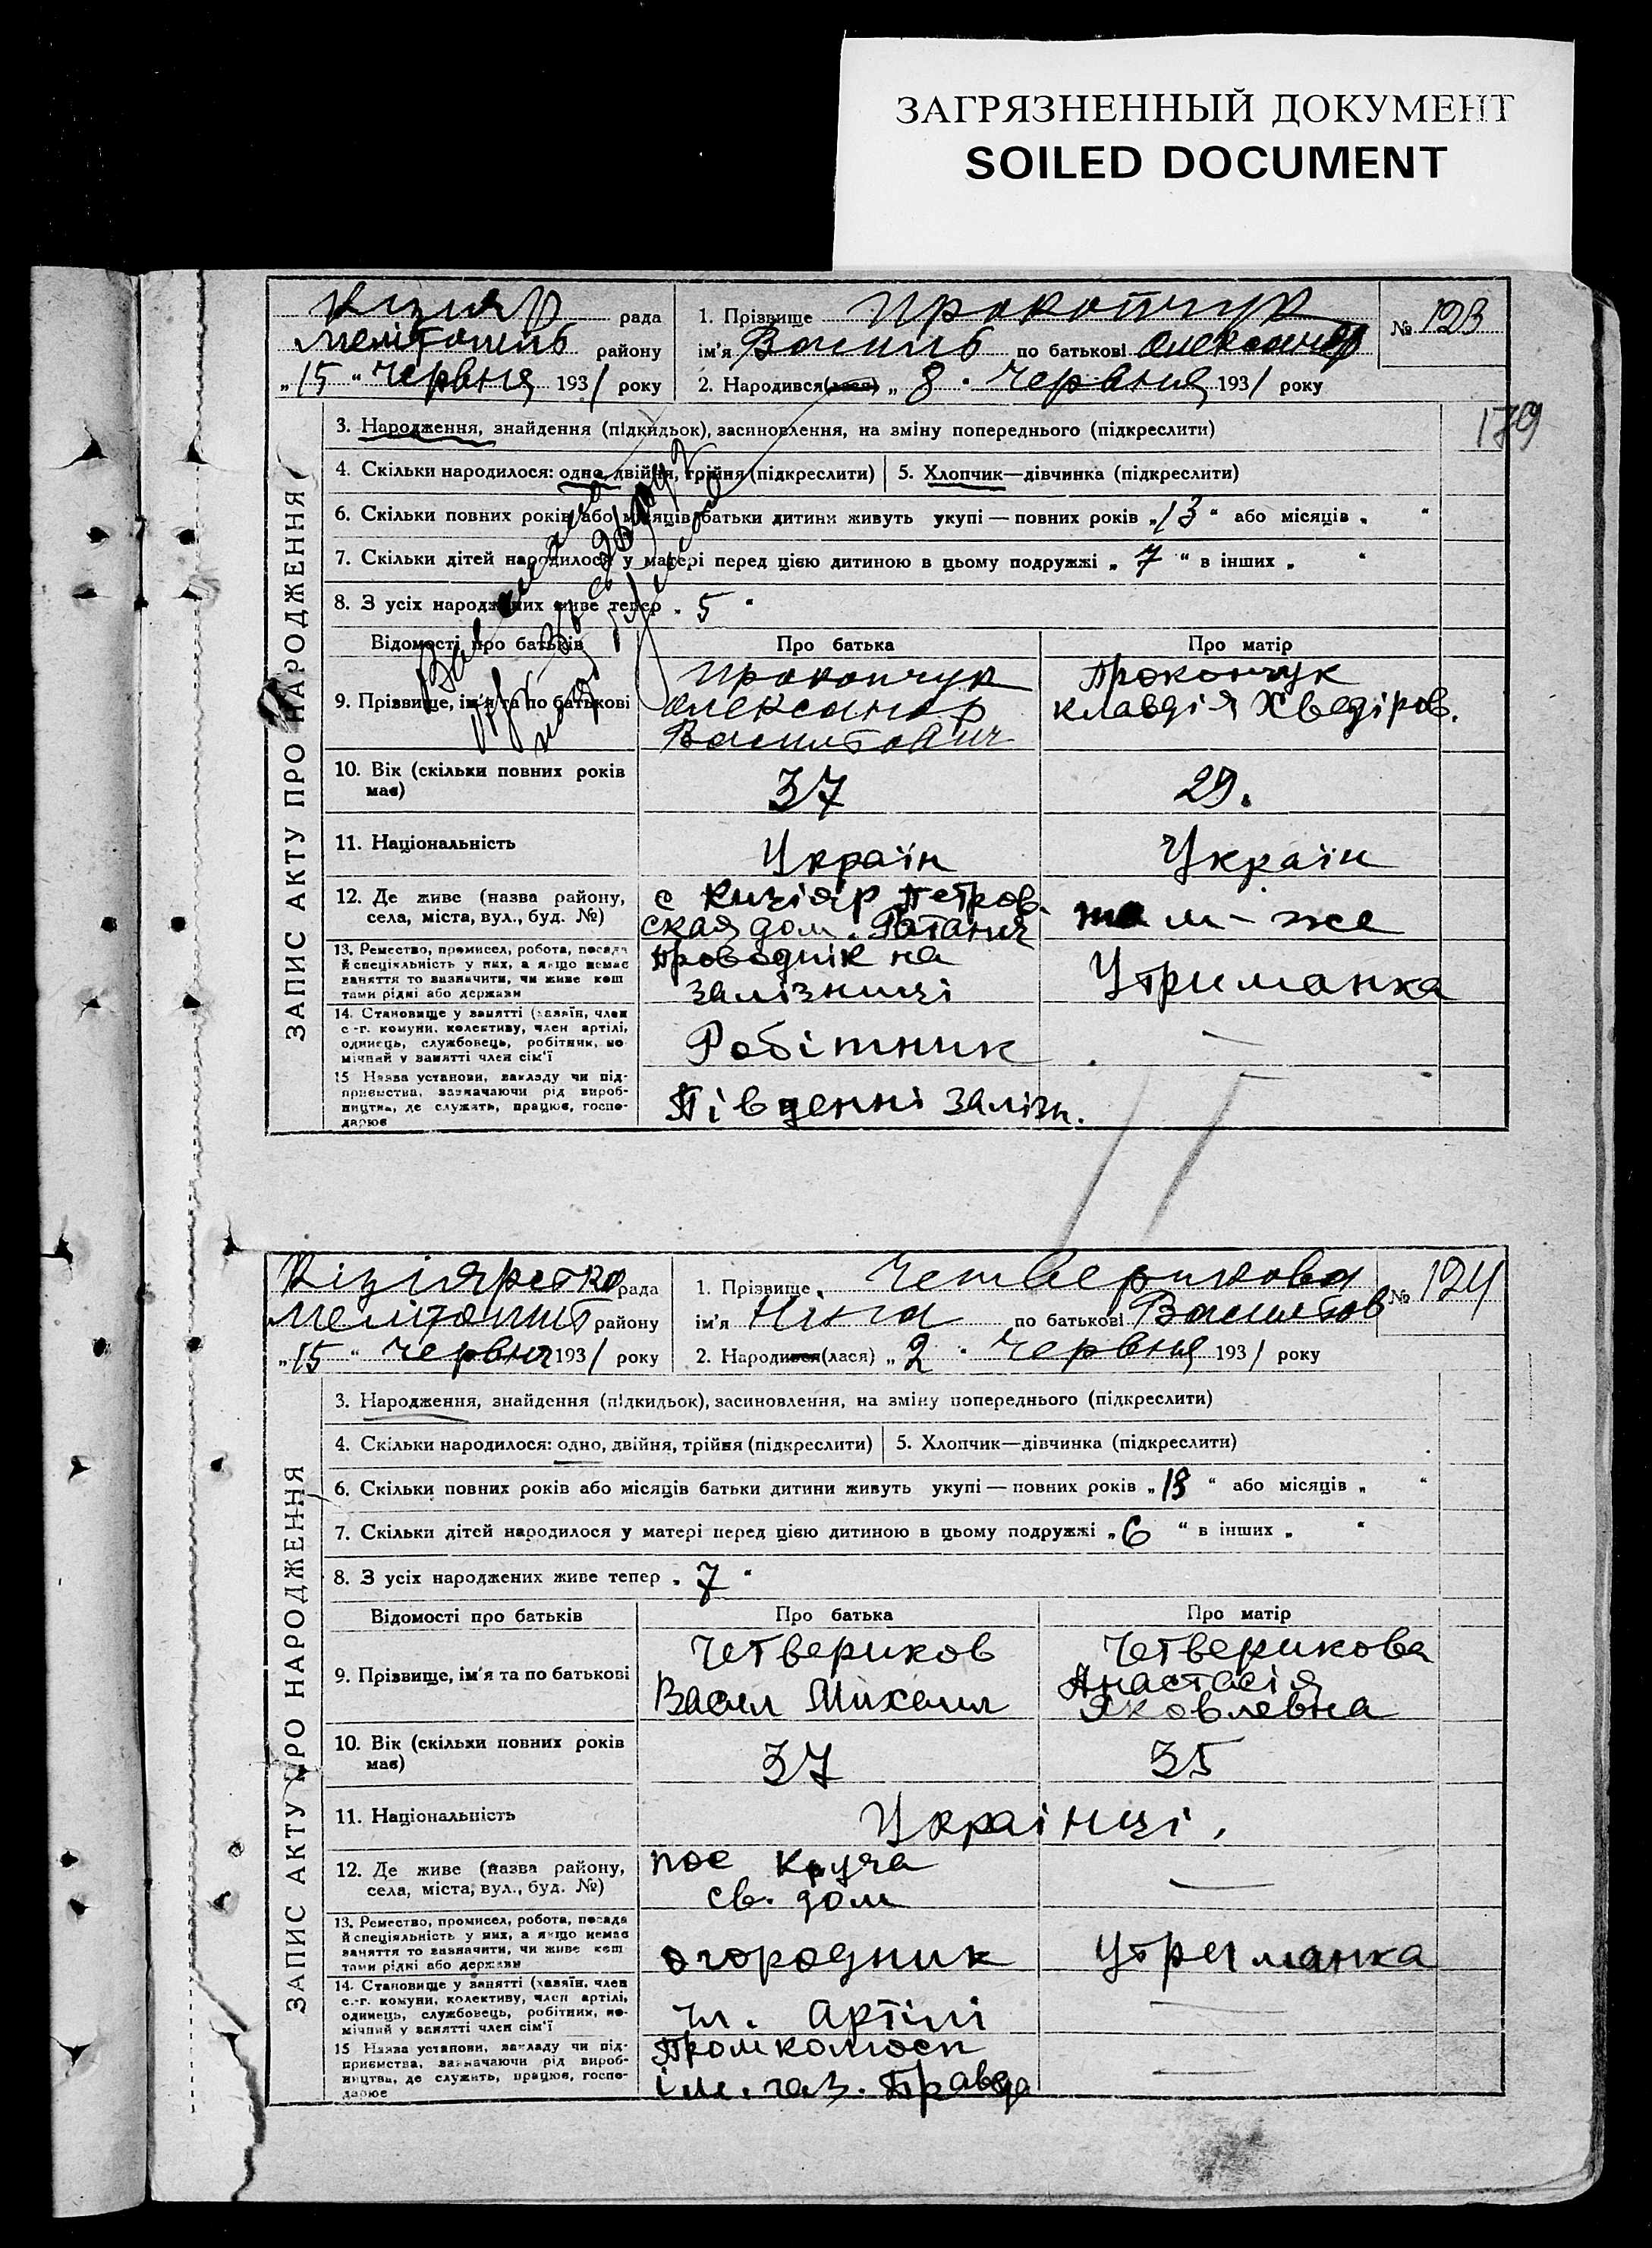 ЗАГРЯЗНЕННЫЙ ДОКУМЕНТ
SOILED DOCUMENT
ЗАПИС АКТУ ПРО НАРОДЖЕННЯ
Кізияр рада
Мелітопель району
„15“ червня 1931 року
1. Прізвище Прокопчук
ім'я Василь по батькові Олександр
2. Народився(лася) „8. червня 1931 року
№ 123
179
3. Народження, знайдення (підкидьок), засиновлення, на зміну попереднього (підкреслити)
4. Скільки народилося: одно, двійня, трійня (підкреслити) 5. Хлопчик—дівчинка (підкреслити)
6. Скільки повних років або місяців батьки дитини живуть укупі — повних років „13“ або місяців „ “
7. Скільки дітей народилося у матері перед цією дитиною в цьому подружжі „7“ в інших „ “
8. З усіх народжених живе тепер „5“
Відомості про батьків Про батька Про матір
9. Прізвище, ім'я та по батькові
Прокопчук
Олександр
Васильович
Прокопчук
Клавдія Хведіров.
10. Вік (скільки повних років має) 37 29.
11. Національність Україн Україн
12. Де живе (назва району, села, міста, вул., буд. №)
с Кизіяр Петров.
ская дом
там-же
13. Ремество, промисел, робота, посада й спеціяльність у них, а якщо немає заняття то визначити, чи живе коштами рідні або держави
Проводнік на
залізниці
Утриманка
14. Становище у занятті (хазяїн, член с.-г. комуни, колективу, член артілі, одинець, службовець, робітник, помічний у занятті член сім'ї
Робітник —
15 Назва установи, закладу чи підприємства, зазначаючи рід виробництва, де служить, працює, господарює
Південні Залізн.
ЗАПИС АКТУ ПРО НАРОДЖЕННЯ
Кізіярсько рада
Меліто району
„15“ червня 1931 року
1. Прізвище Четверикова
ім'я Нина по батькові Васильов
2. Народився(лася) „2. червня 1931 року
№ 124
3. Народження, знайдення (підкидьок), засиновлення, на зміну попереднього (підкреслити)
4. Скільки народилося: одно, двійня, трійня (підкреслити) 5. Хлопчик—дівчинка (підкреслити)
6. Скільки повних років або місяців батьки дитини живуть укупі — повних років „18“ або місяців „ “
7. Скільки дітей народилося у матері перед цією дитиною в цьому подружжі „6“ в інших „ “
8. З усіх народжених живе тепер „7“
Відомості про батьків Про батька Про матір
9. Прізвище, ім'я та по батькові
Четвериков
Васил Михаил
Четверикова
Анастасія
Яковлевна
10. Вік (скільки повних років має) 37 35
11. Національність Українці.
12. Де живе (назва району, села, міста, вул., буд. №)
пос Круча
св. дом
—
13. Ремество, промисел, робота, посада й спеціяльність у них, а якщо немає заняття то визначити, чи живе коштами рідні або держави
огородник Утриманка
14. Становище у занятті (хазяїн, член с.-г. комуни, колективу, член артілі, одинець, службовець, робітник, помічний у занятті член сім'ї
Чл. Артілі —
15 Назва установи, закладу чи підприємства, зазначаючи рід виробництва, де служить, працює, господарює
ім. газ. Правда —